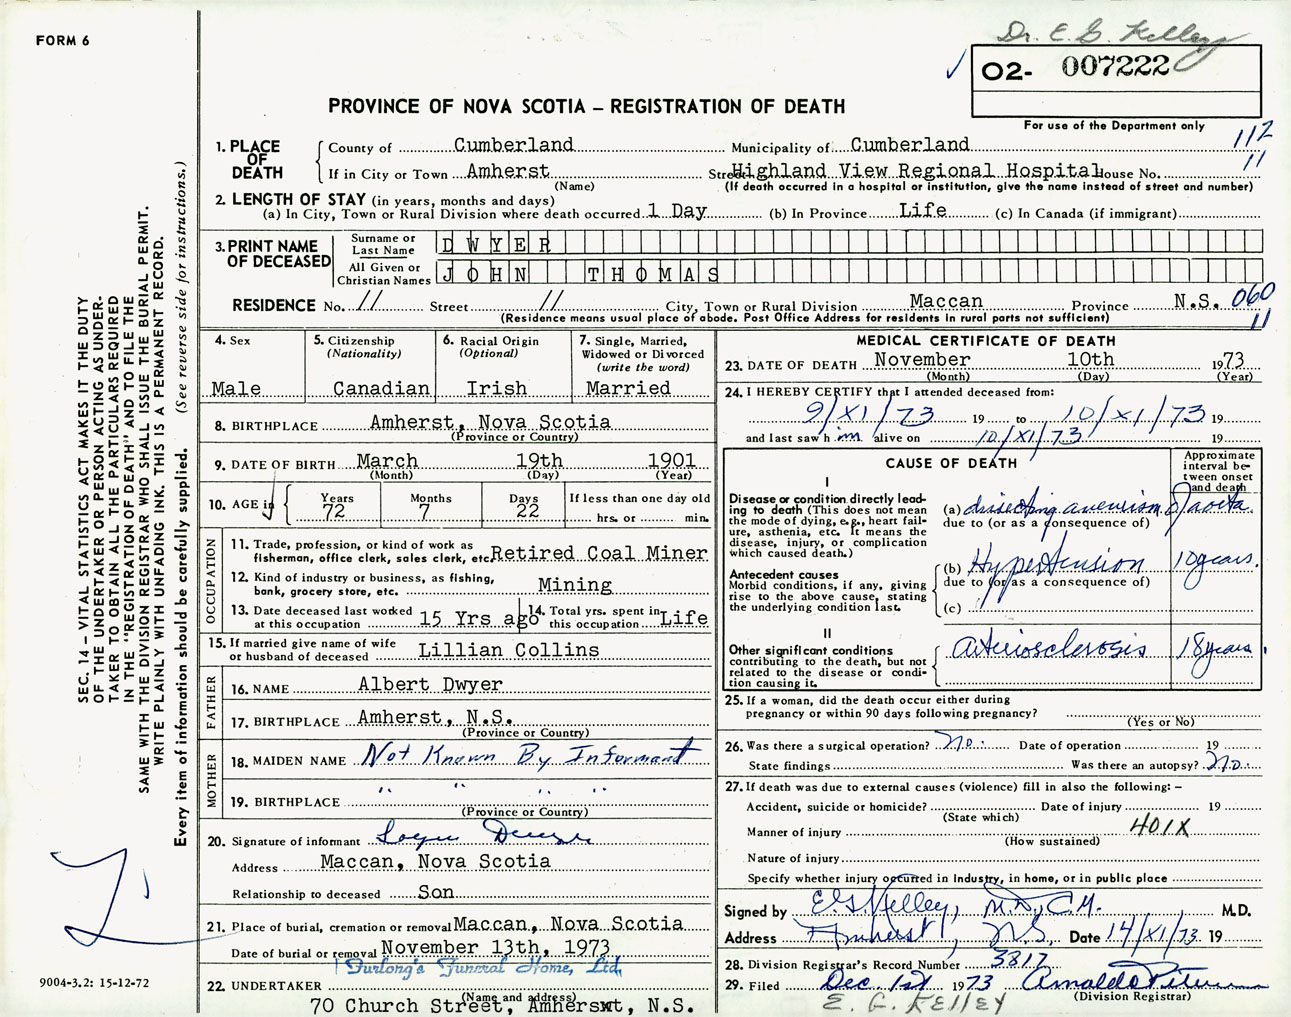 FORM 6
Dr. E. G. Kelley
O2- 007222
PROVINCE OF NOVA SCOTIA – REGISTRATION OF DEATH
For use of the Department only
112
11
1. PLACE OF DEATH
County of Cumberland Municipality of Cumberland
If in City or Town Amherst Street Highland View Regional Hospital House No.
(Name) (If death occurred in a hospital or institution, give the name instead of street and number)
2. LENGTH OF STAY (in years, months and days)
(a) In City, Town or Rural Division where death occurred 1 Day (b) In Province Life (c) In Canada (if immigrant)
3. PRINT NAME OF DECEASED
Surname or Last Name DWYER
All Given or Christian Names JOHN THOMAS
RESIDENCE No. // Street // City, Town or Rural Division Maccan Province N.S. 060
11
(Residence means usual place of abode. Post Office Address for residents in rural parts not sufficient)
4. Sex
Male
5. Citizenship
(Nationality)
Canadian
6. Racial Origin
(Optional)
Irish
7. Single, Married, Widowed or Divorced
(write the word)
Married
8. BIRTHPLACE Amherst, Nova Scotia
(Province or Country)
9. DATE OF BIRTH March 19th 1901
(Month) (Day) (Year)
10. AGE in
Years Months Days If less than one day old
72 7 22 hrs. or min.
OCCUPATION
11. Trade, profession, or kind of work as fisherman, office clerk, sales clerk, etc. Retired Coal Miner
12. Kind of industry or business, as fishing, bank, grocery store, etc. Mining
13. Date deceased last worked at this occupation 15 Yrs ago
14. Total yrs. spent in this occupation Life
15. If married give name of wife or husband of deceased Lillian Collins
FATHER
16. NAME Albert Dwyer
17. BIRTHPLACE Amherst, N.S.
(Province or Country)
MOTHER
18. MAIDEN NAME Not Known By Informant
19. BIRTHPLACE " " " "
(Province or Country)
20. Signature of informant
Address Maccan, Nova Scotia
Relationship to deceased Son
21. Place of burial, cremation or removal Maccan, Nova Scotia
Date of burial or removal November 13th, 1973
Furlong's Funeral Home, Ltd.
22. UNDERTAKER
(Name and address)
70 Church Street, Amherst, N.S.
MEDICAL CERTIFICATE OF DEATH
23. DATE OF DEATH November 10th 1973
(Month) (Day) (Year)
24. I HEREBY CERTIFY that I attended deceased from:
9/XI/73 19 to 10/XI/73 19
and last saw h im alive on 10/XI/73 19
CAUSE OF DEATH
Approximate interval between onset and death
I
Disease or condition directly leading to death (This does not mean the mode of dying, e.g., heart failure, asthenia, etc. It means the disease, injury, or complication which caused death.)
(a) dissecting aneurism of aorta.
due to (or as a consequence of)
Antecedent causes
Morbid conditions, if any, giving rise to the above cause, stating the underlying condition last.
(b) Hypertension 10 years.
due to (or as a consequence of)
(c)
II
Other significant conditions contributing to the death, but not related to the disease or condition causing it.
arteriosclerosis 18 years.
25. If a woman, did the death occur either during pregnancy or within 90 days following pregnancy?
(Yes or No)
26. Was there a surgical operation? no. Date of operation 19
State findings Was there an autopsy? no.
27. If death was due to external causes (violence) fill in also the following: –
Accident, suicide or homicide? Date of injury 19
(State which)
401X
Manner of injury
(How sustained)
Nature of injury
Specify whether injury occurred in industry, in home, or in public place
Signed by E.G. Kelley, M.D., C.M. M.D.
Address Amherst, N.S. Date 14/XI/73 19
28. Division Registrar's Record Number 3817
29. Filed Dec. 1st 1973
(Division Registrar)
E. G. KELLEY
SEC. 14 – VITAL STATISTICS ACT MAKES IT THE DUTY
OF THE UNDERTAKER OR PERSON ACTING AS UNDER-
TAKER TO OBTAIN ALL THE PARTICULARS REQUIRED
IN THE "REGISTRATION OF DEATH" AND TO FILE THE
SAME WITH THE DIVISION REGISTRAR WHO SHALL ISSUE THE BURIAL PERMIT.
WRITE PLAINLY WITH UNFADING INK. THIS IS A PERMANENT RECORD.
Every item of information should be carefully supplied. (See reverse side for instructions.)
9004-3.2: 15-12-72